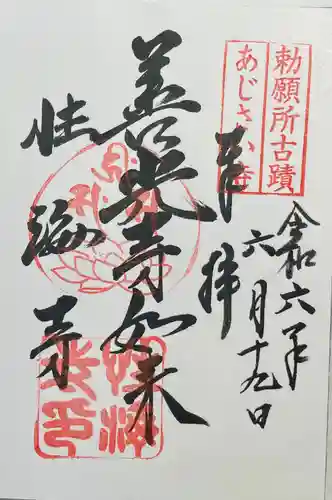 勅願所古蹟
あじさい寺
奉拝
令和六年
六月十九日
善光寺如来
性海寺